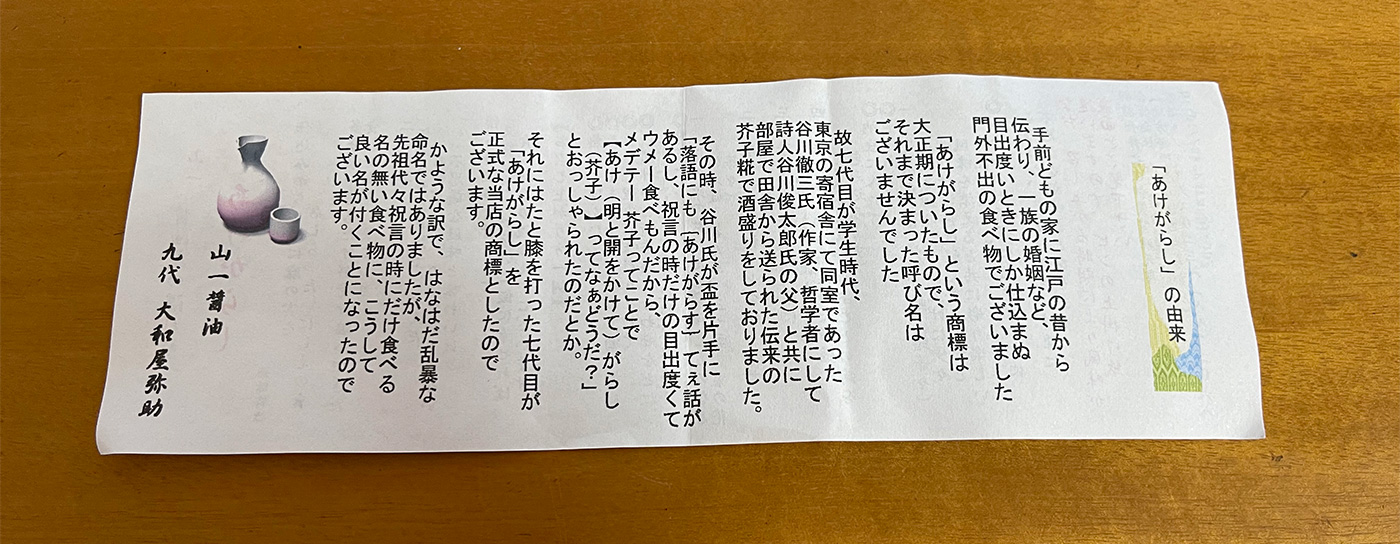 「あけがらし」の由来
手前どもの家に江戸の昔から
伝わり、一族の婚姻など、
目出度いときにしか仕込まぬ
門外不出の食べ物でございました
「あけがらし」という商標は
大正期についたもので、
それまで決まった呼び名は
ございませんでした
故七代目が学生時代、
東京の寄宿舎にて同室であった
谷川徹三氏（作家、哲学者にして
詩人谷川俊太郎氏の父）と共に
部屋で田舎から送られた伝来の
芥子糀で酒盛りをしておりました。
その時、谷川氏が盃を片手に
「落語にも［あけがらす］てぇ話が
あるし、祝言の時だけの目出度くて
ウメー食べもんだから、
メデテー芥子ってことで
【あけ（明と開をかけて）がらし
（芥子）】ってなぁどうだ？」
とおっしゃられたのだとか。
それにはたと膝を打った七代目が
「あけがらし」を
正式な当店の商標としたので
ございます。
かような訳で、はなはだ乱暴な
命名ではありましたが、
先祖代々祝言の時にだけ食べる
名の無い食べ物に、こうして
良い名が付くことになったので
ございます。
山一醤油
九代 大和屋弥助